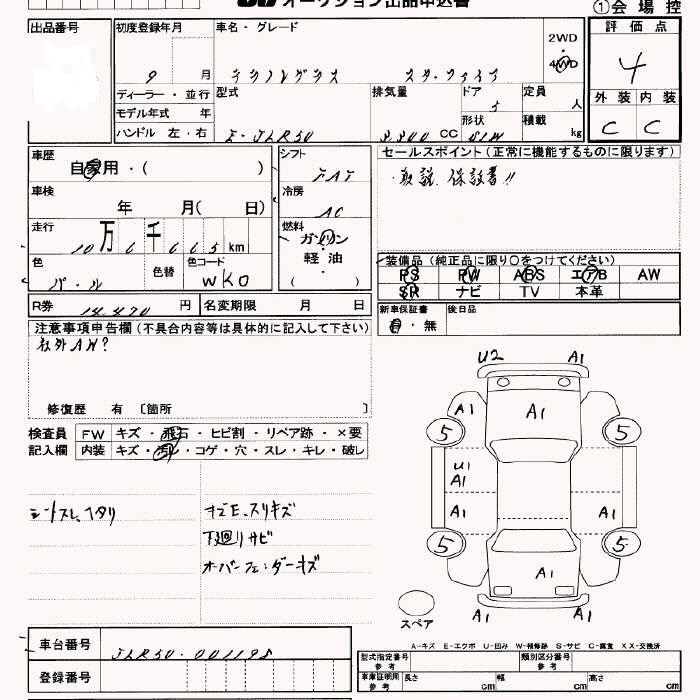 オークション出品申込書
①会場控
出品番号
初度登録年月
車名・グレード
9 月
2WD
・
4WD
評価点
4
ディーラー・並行
モデル年式 年
ハンドル 左・右
型式
排気量
3,300 CC
ドア
5
形状
定員
人
積載
kg
外装 内装
C C
車歴
自家用・( )
シフト
FAT
セールスポイント(正常に機能するものに限ります)
・取説、保証書!!
車検
年 月( 日)
冷房
AC
走行
10万6千665km
燃料
ガソリン
・
軽油
( )
色
パール
色替
色コード
WK0
装備品(純正品に限り○をつけてください)
PS PW ABS エアB AW
SR ナビ TV 本革
R券
円
名変期限 月 日
新車保証書
有・無
後日品
注意事項申告欄(不具合内容等は具体的に記入して下さい)
社外AW?
修復歴 有 〔箇所 〕
検査員
記入欄
FW キズ・飛石・ヒビ割・リペア跡・×要
内装 キズ・汚レ・コゲ・穴・スレ・キレ・破し
シートスレ、ヘタリ
下廻リサビ
オーバーフェンダーキズ
U2 A1
A1 A1
5 5
U1
A1
A1 A1
5 5
A1
A1 A1
スペア
A-キズ E-エクボ U-凹み W-補修跡 S-サビ C-腐食 XX-交換済
車台番号
JLR50-001198
登録番号
型式指定番号
参考
類別区分番号
参考
車庫証明用
参考
長さ cm
幅 cm
高さ cm